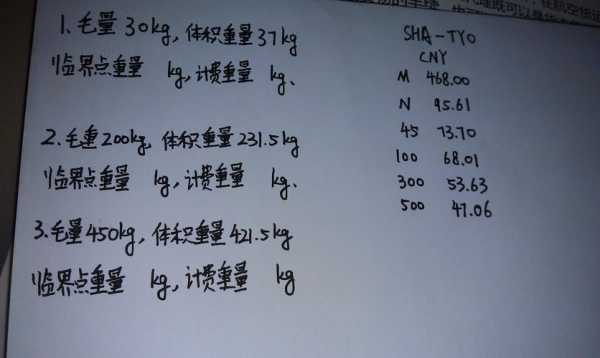 1、毛量30kg,体积重量37kg
临界点重量 kg,计费重量 kg、
2、毛重200kg,体积重量231.5kg
临界点重量 kg,计费重量 kg.
3.毛量450kg,体积重量421.5kg
临界点重量 kg,计费重量 kg
SHA-TYO
CNY
M 468.00
N 95.61
45 73.70
100 68.01
300 53.63
500 47.06